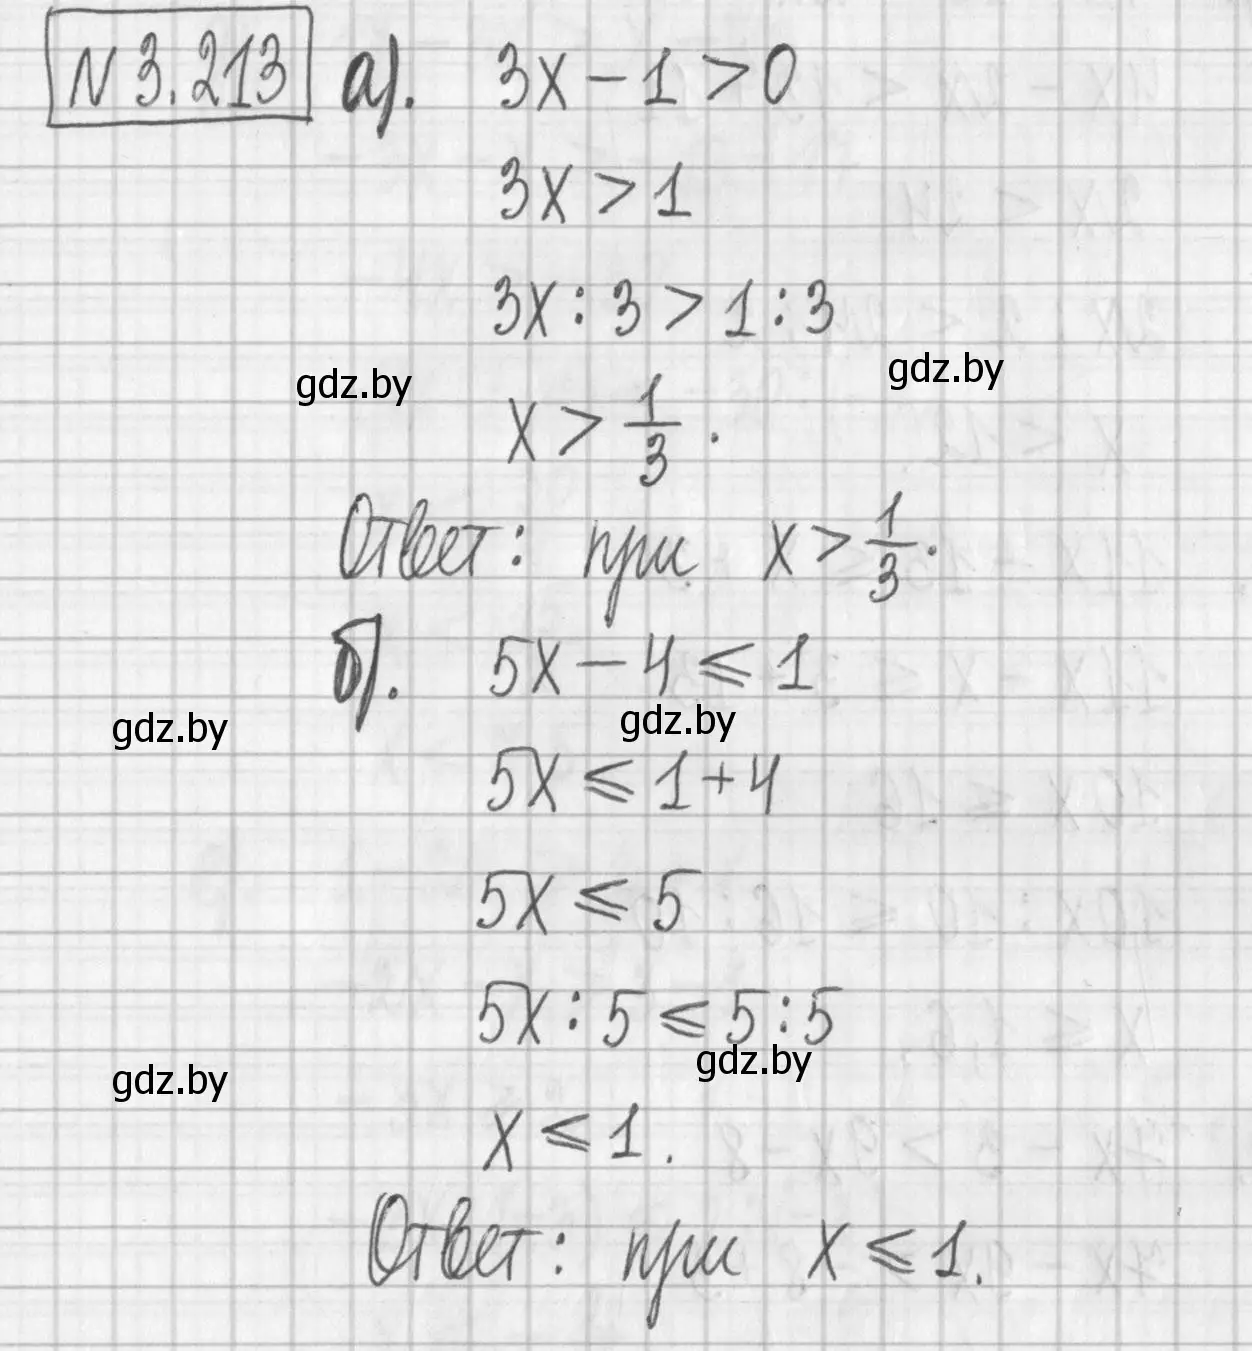 N 3.213 а). 3x - 1 > 0
3x > 1
3x : 3 > 1 : 3
gdz.by
gdz.by
x > 1/3 .
Ответ: при x > 1/3.
б). 5x - 4 ⩽ 1
gdz.by
gdz.by
5x ⩽ 1 + 4
5x ⩽ 5
5x : 5 ⩽ 5 : 5
gdz.by
gdz.by
x ⩽ 1.
Ответ: при x ⩽ 1.